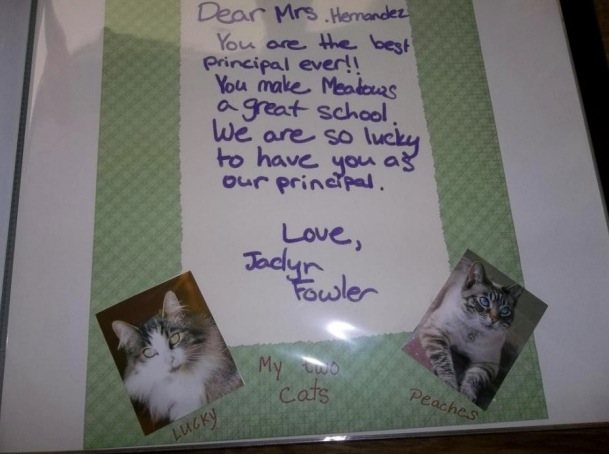 Dear Mrs. Hernandez
You are the best
principal ever!!
You make Meadows
a great school.
We are so lucky
to have you as
our principal.
Love,
Jaclyn
Fowler
My two
Cats
Lucky
Peaches